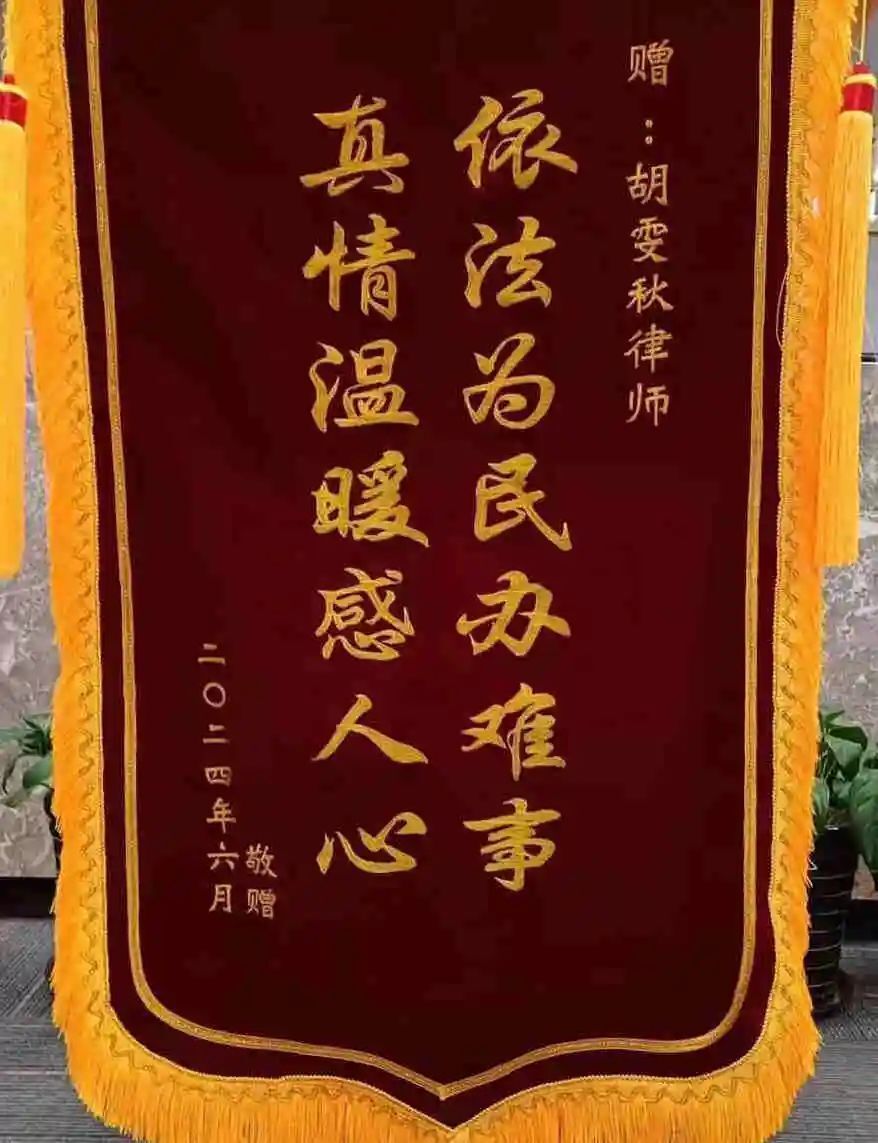 赠：胡雯秋律师
依法为民办难事
真情温暖感人心
敬赠
二〇二四年六月